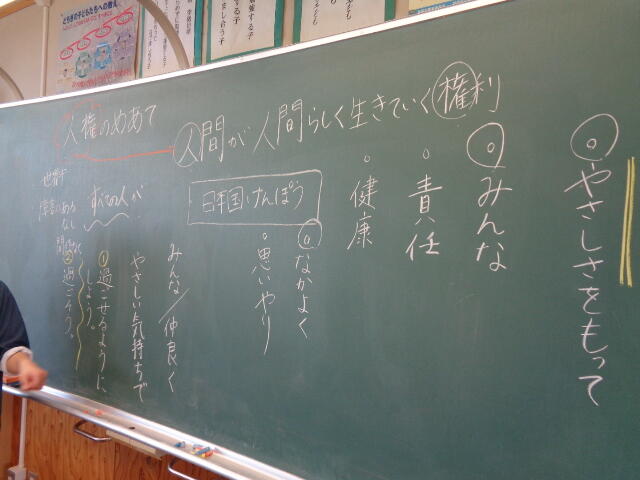 人権のめあて
人間が人間らしく生きていく権利
やさしさをもって
みんな
責任
健康
日本国けんぽう
なかよく
思いやり
みんな/仲良く
やさしい気持ちで
すべての人が
①過ごせるように
しよう。
世界中
②過ごそう。